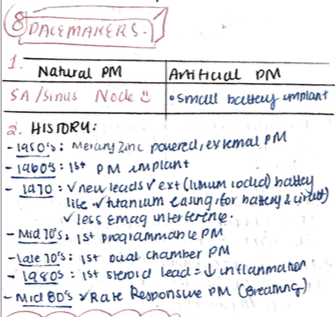 8 PACEMAKERS.
1.
Natural PM Artificial PM
SA/Sinus Node •Small battery implant
2. HISTORY:
- 1950's: Mercury Zinc powered, external PM
- 1960's: 1st PM implant
- 1970: √new leads √ext (lithium iodide) battery
life √titanium casing (for battery & circuit)
√less emag interference.
- Mid 70's: 1st programmable PM
- Late 70's: 1st Dual chamber PM
- 1980s: 1st steroid lead = ↓ inflammation
- Mid 80's √Rate Responsive PM (Breathing)